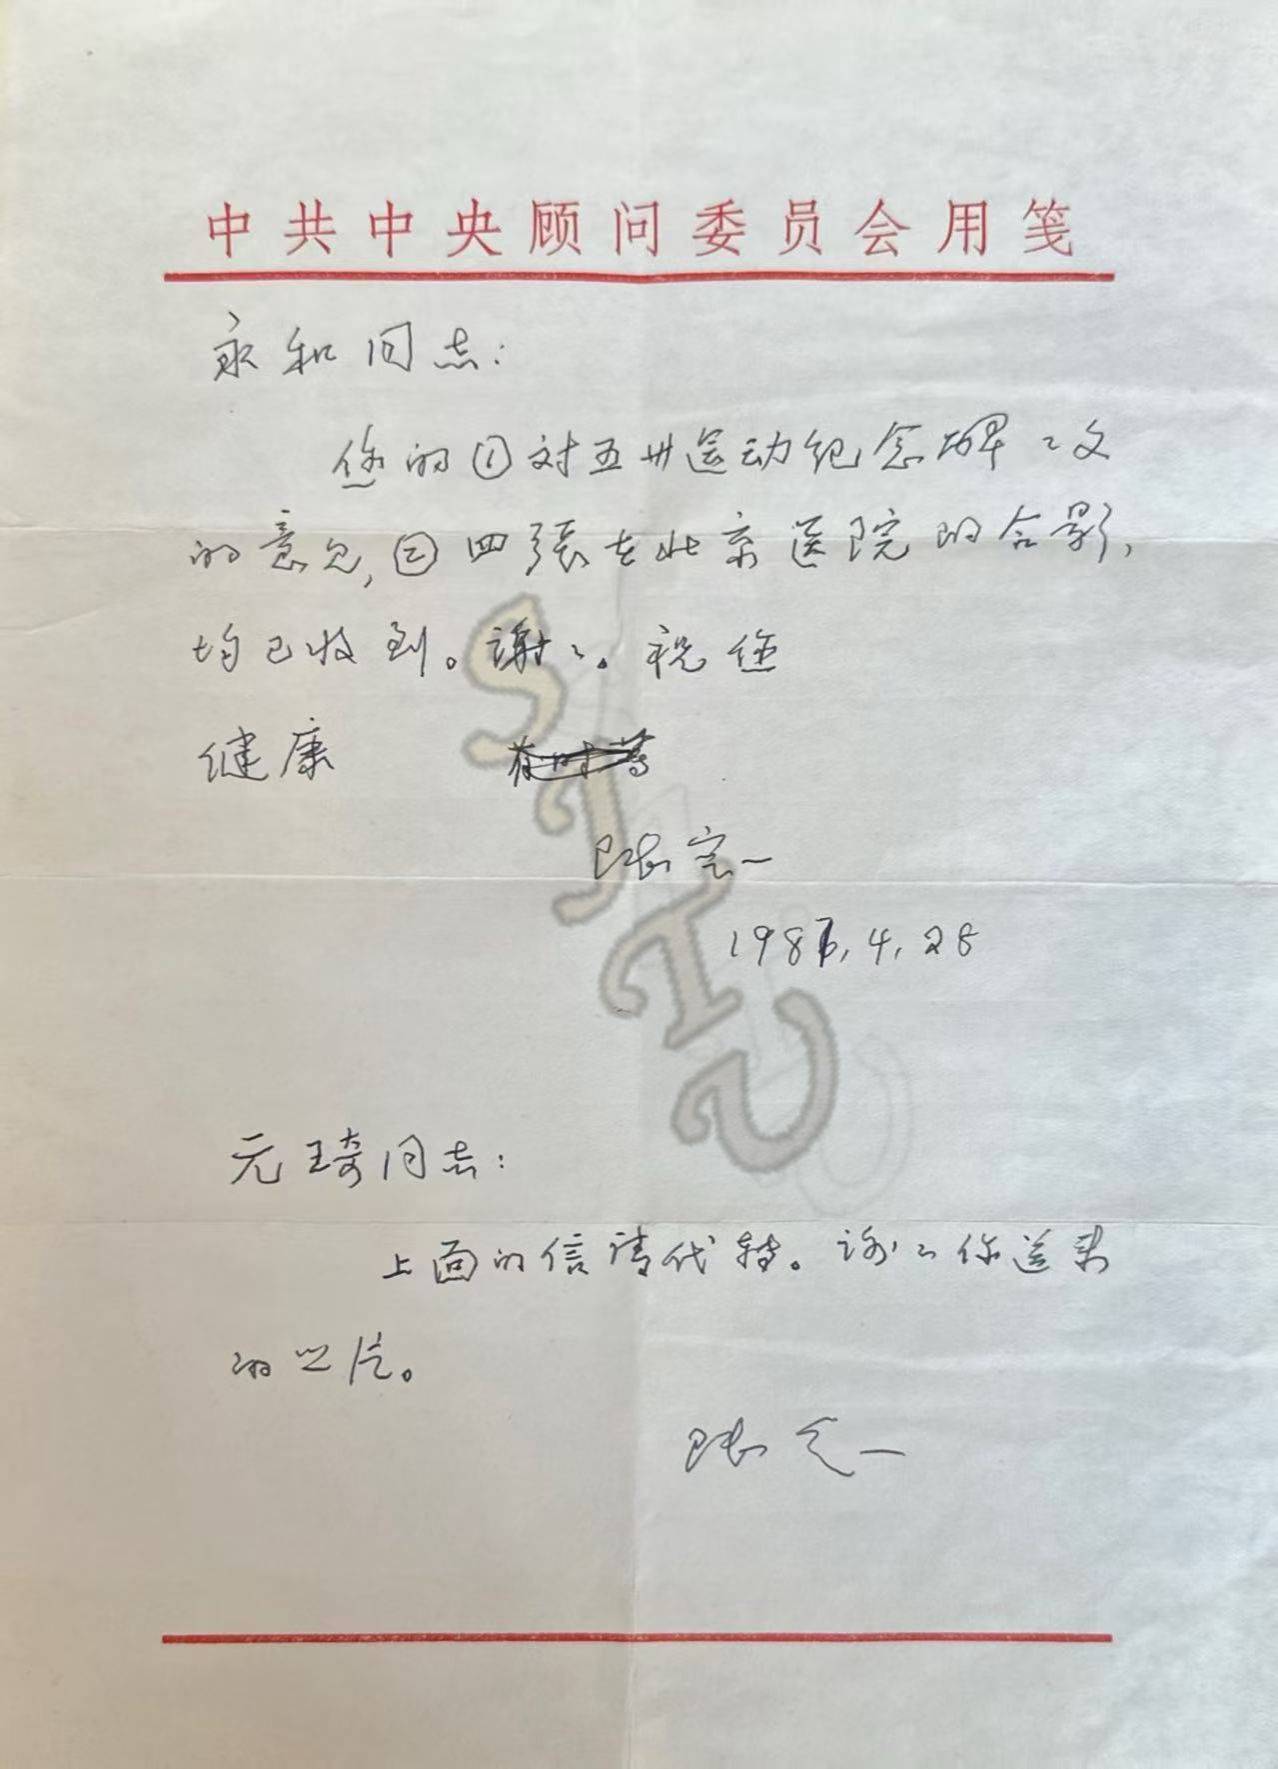 中共中央顾问委员会用笺
永和同志:
您的①对五卅运动纪念碑〻文
的意见,②四張在北京医院的合影,
均已收到。谢〻。祝您
健康
陆定一
1987.4.28
元琦同志:
上面的信请代转。谢〻你送来
的片。
陆定一